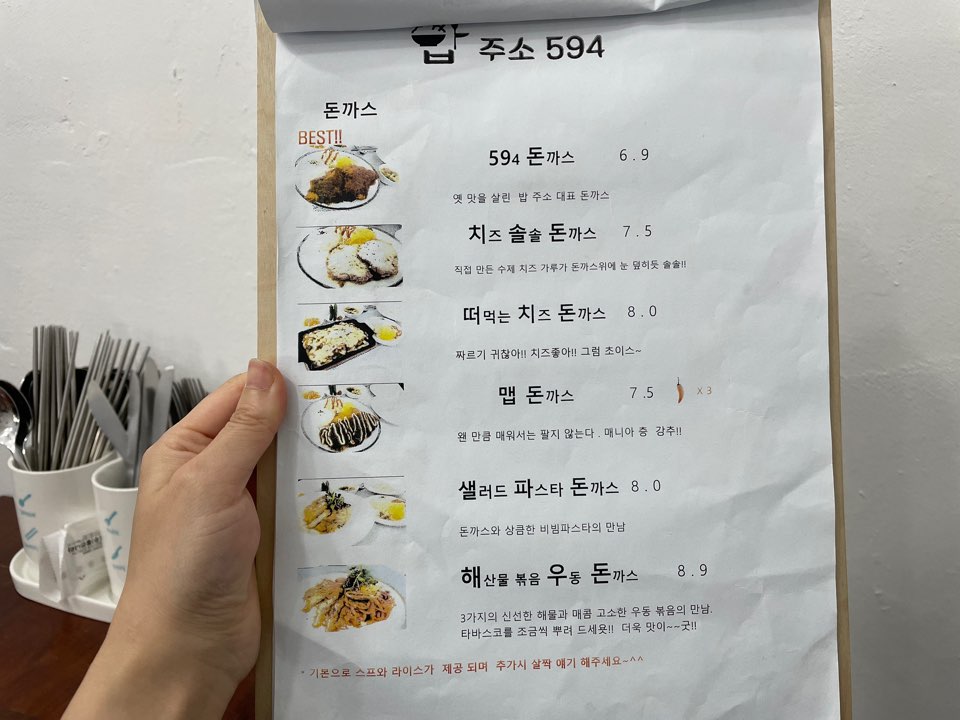 밥 주소 594
돈까스
BEST!!
594 돈까스 6.9
옛 맛을 살린 밥 주소 대표 돈까스
치즈 솔솔 돈까스 7.5
직접 만든 수제 치즈 가루가 돈까스위에 눈 덮히듯 솔솔!!
떠먹는 치즈 돈까스 8.0
짜르기 귀찮아!! 치즈좋아!! 그럼 초이스~
맵 돈까스 7.5 X 3
왠 만큼 매워서는 팔지 않는다 . 매니아 층 강추!!
샐러드 파스타 돈까스 8.0
돈까스와 상큼한 비빔파스타의 만남
해산물 볶음 우동 돈까스 8.9
3가지의 신선한 해물과 매콤 고소한 우동 볶음의 만남.
타바스코를 조금씩 뿌려 드세욧!! 더욱 맛이~~굿!!
* 기본으로 스프와 라이스가 제공 되며 추가시 살짝 얘기 해주세요~^^